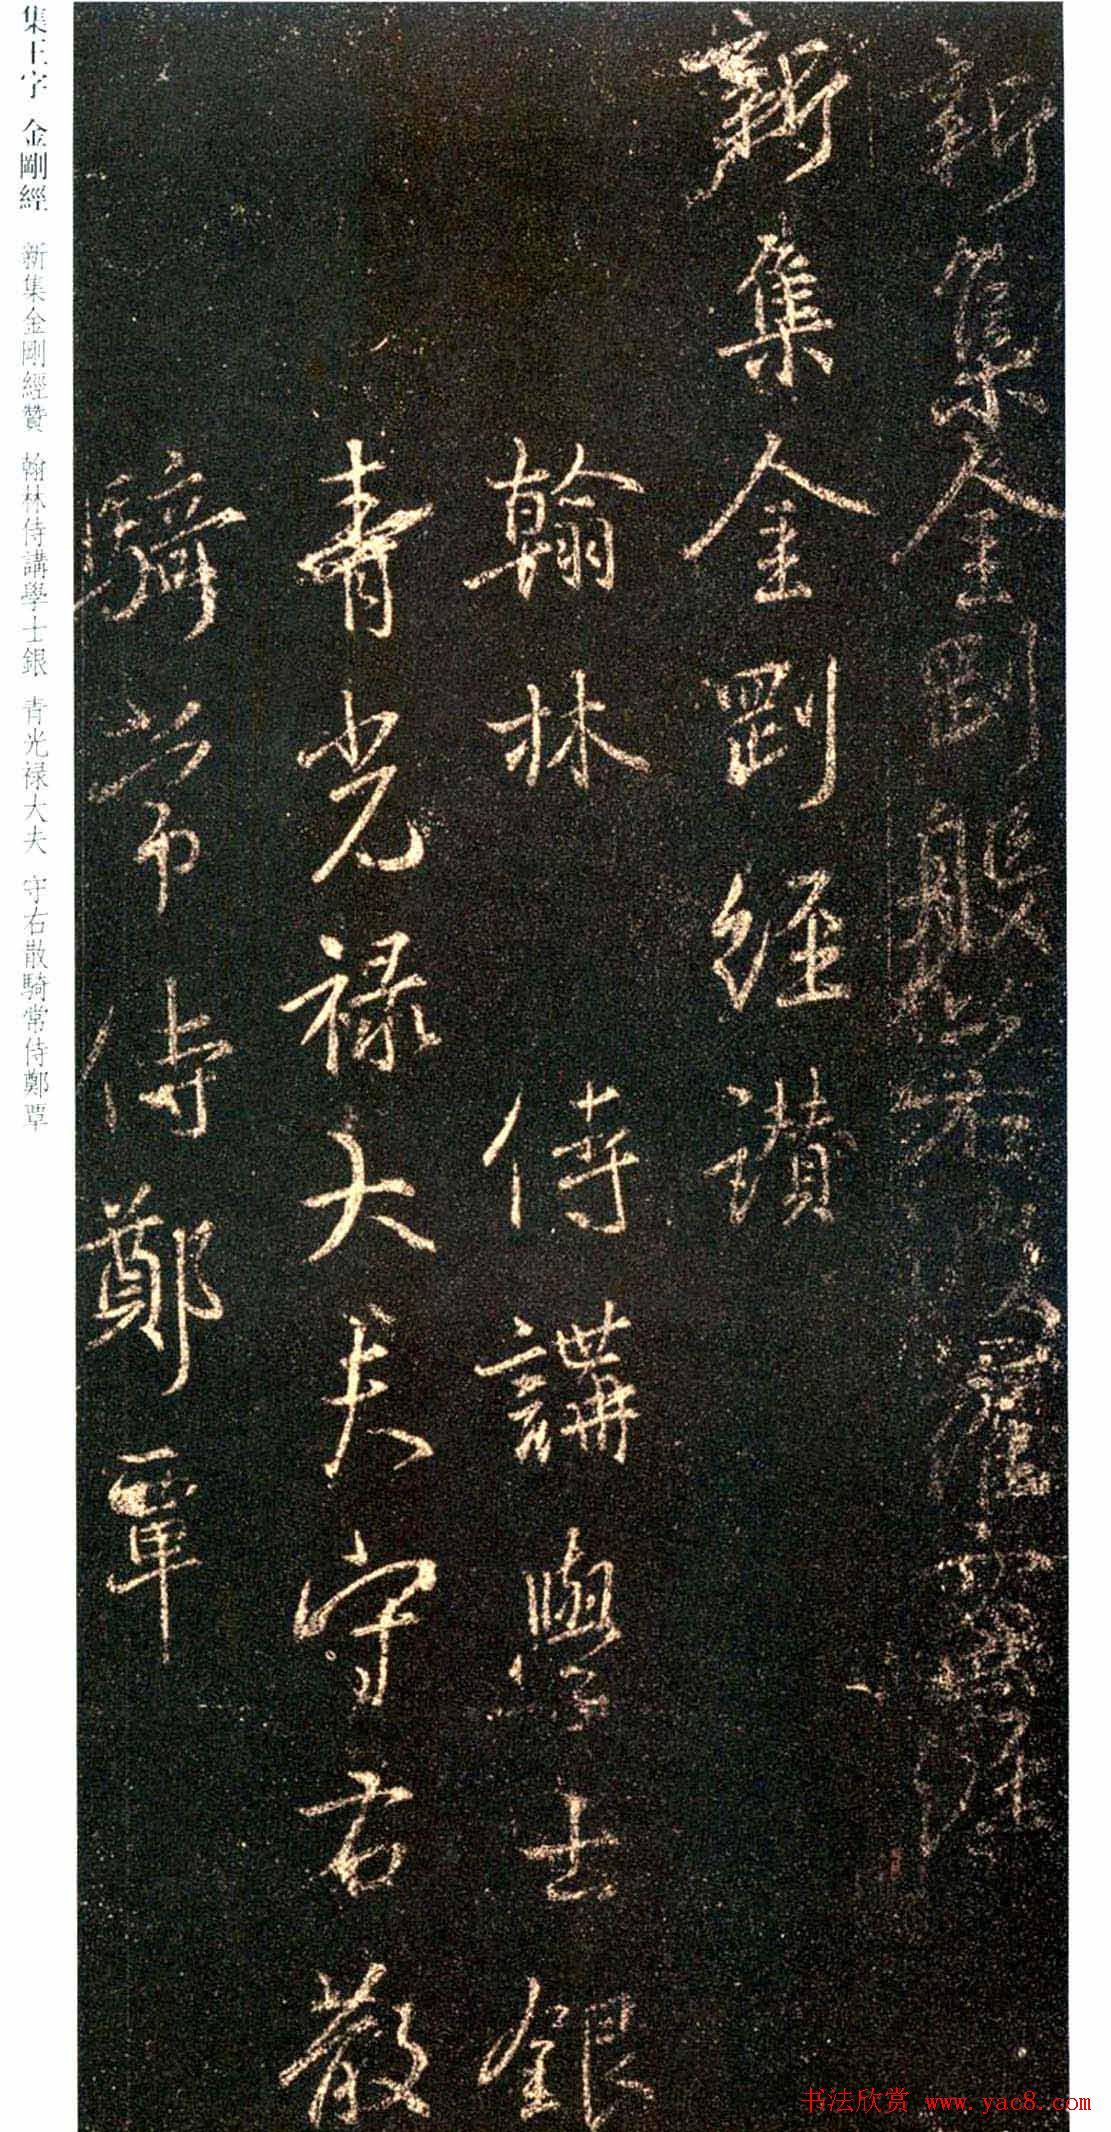 新集金剛般若波羅蜜經
新集金剛經讃
翰林侍講學士銀
青光禄大夫守右散
騎常侍鄭覃
集王字 金剛經 新集金剛經贊 翰林侍講學士銀 青光禄大夫 守右散騎常侍鄭覃
书法欣赏 www.yac8.com